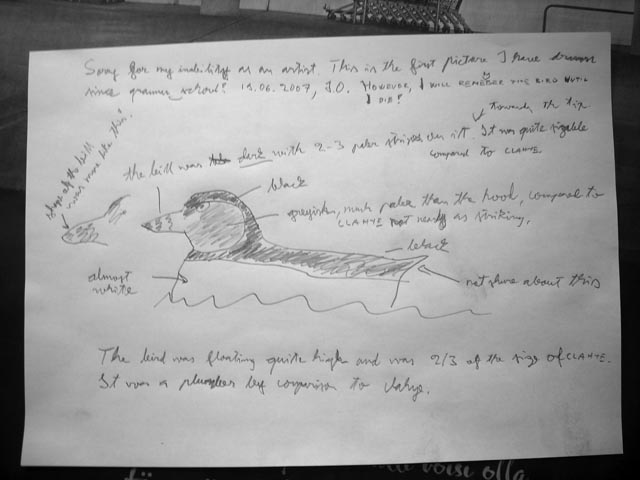 Sorry for my inability as an artist. This is the first picture I have drawn
since grammar school! 19.06.2007, J.O. HOWEVER, I WILL REMEMBER THIS BIRD UNTIL
I DIE!
towards the tip
the bill was dark with 2-3 paler stripes on it. It was quite sizable
compared to CLAHYE
shape of the bill
was more like this!
black
greyish, much paler than the hood, compared to
CLAHYE not nearly as striking.
black
almost
white
not sure about this
The bird was floating quite high and was 2/3 of the size of CLAHYE.
It was a plumbeus by comparison to clahye.
voisi olla